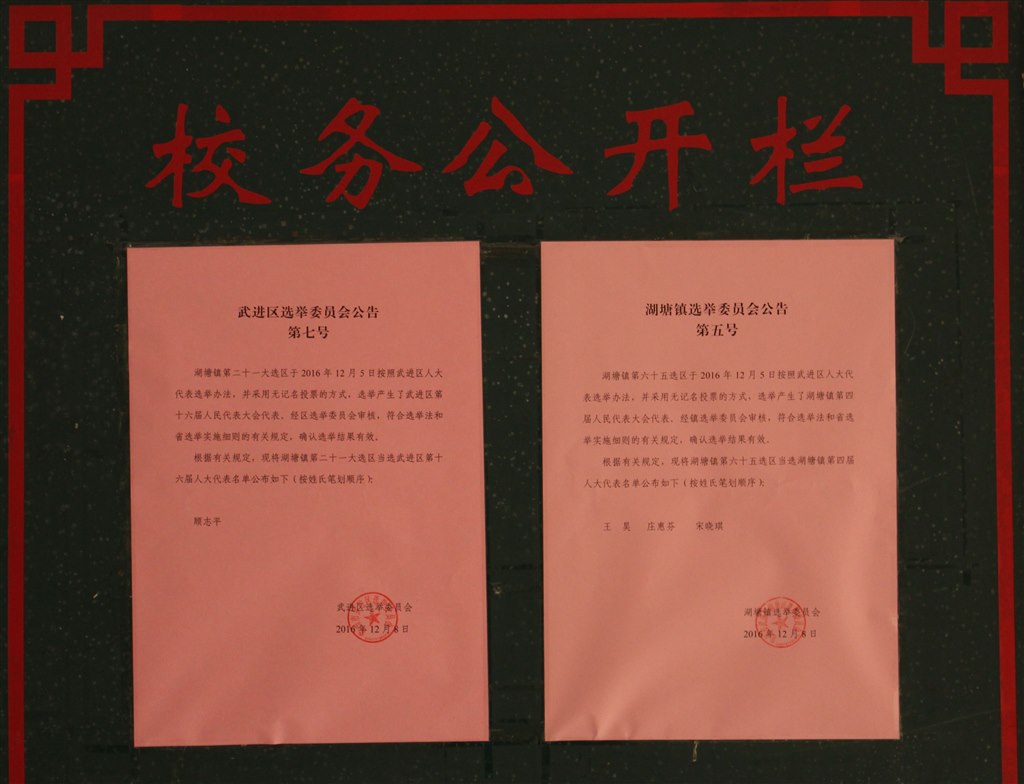 校务公开栏
武进区选举委员会公告
第七号
湖塘镇第二十一大选区于 2016 年 12 月 5 日按照武进区人大
代表选举办法，并采用无记名投票的方式，选举产生了武进区第
十六届人民代表大会代表。经区选举委员会审核，符合选举法和
省选举实施细则的有关规定，确认选举结果有效。
根据有关规定，现将湖塘镇第二十一大选区当选武进区第十
六届人大代表名单公布如下（按姓氏笔划顺序）：
顾志平
武进区选举委员会
2016 年 12 月 8 日
湖塘镇选举委员会公告
第五号
湖塘镇第六十五选区于 2016 年 12 月 5 日按照武进区人大代
表选举办法，并采用无记名投票的方式，选举产生了湖塘镇第四
届人民代表大会代表。经镇选举委员会审核，符合选举法和省选
举实施细则的有关规定，确认选举结果有效。
根据有关规定，现将湖塘镇第六十五选区当选湖塘镇第四届
人大代表名单公布如下（按姓氏笔划顺序）：
王 昊 庄惠芬 宋晓琪
湖塘镇选举委员会
2016 年 12 月 8 日